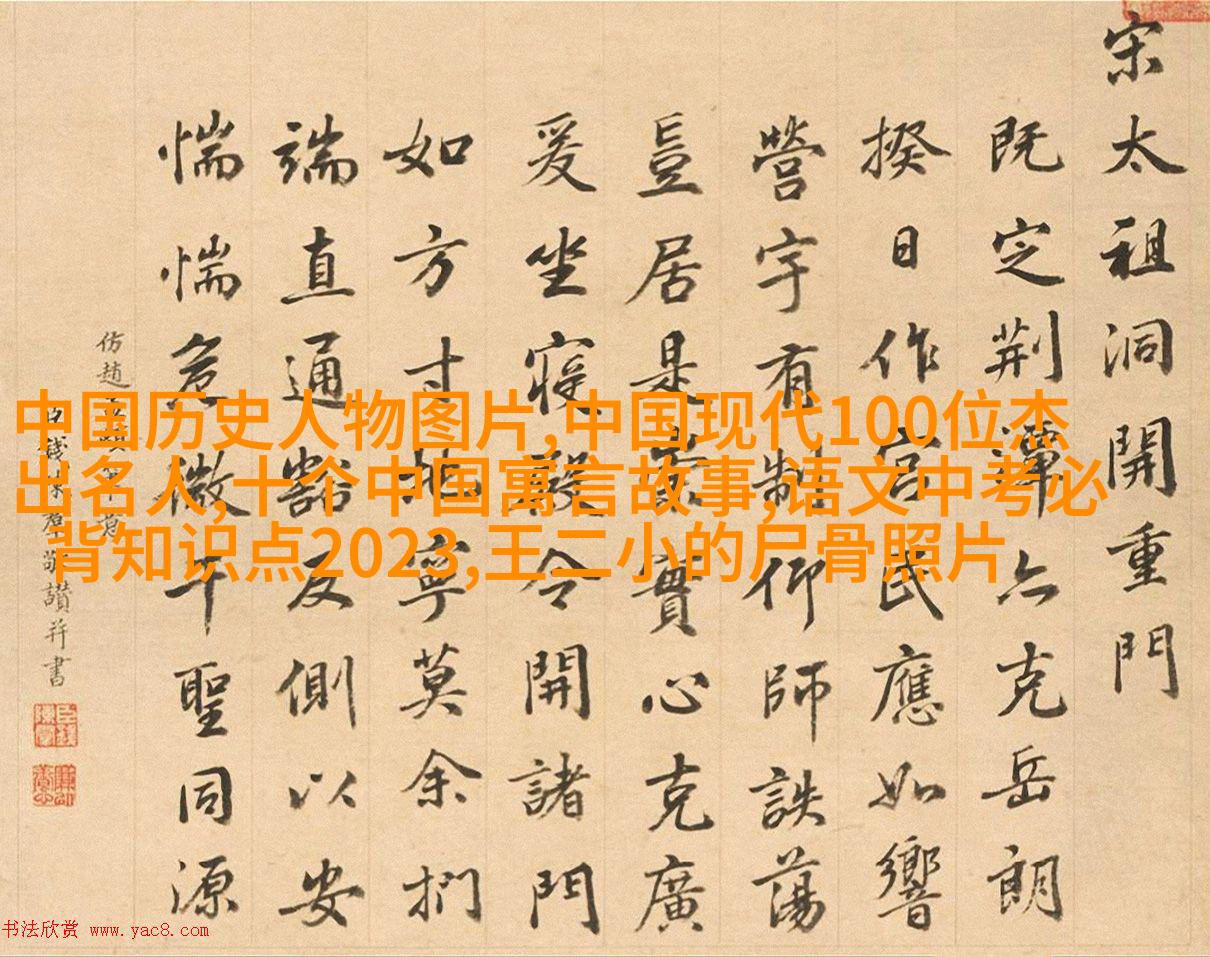 宋太祖洞開重門
既㝎荆潭亦克岳朗
揆日作宫民應如響
營宇有制仰師詄蕩
豈居是實心克廣
爰坐寝殿令開諸門
如方寸地寧莫余捫
端直通豁反側以安
惴惴危微千聖同源
仿趙孟頫筆意
臣錢陳羣敬讃并書
中国历史人物图片,中国现代100位杰
出名人,十个中国寓言故事,语文中考必
背知识点2023,王二小的尸骨照片
书法欣赏 www.yac8.com